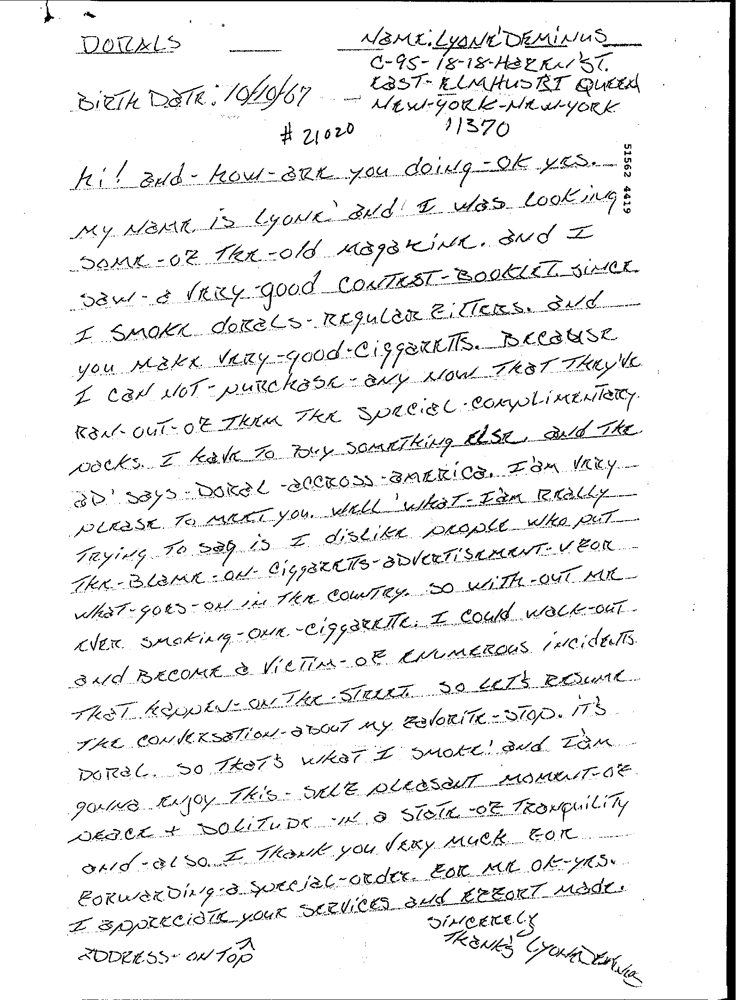 DORALS
NAME: LYONE' DEMINUS
C-95-18-18-HAZEN ST.
EAST-ELMHUSRT QUEEN
BIRTH DATE: 10/10/67 - NEW-YORK-NEW-YORK
# 21020 11370
Hi! and-How-are you doing-OK yes.
My Name is Lyone' and I was Looking
some-of the-old magazine. and I
saw-a very-good CONTEST-BOOKLET since
I smoke dorals-Regular Filters. and
you make very-good-Ciggaretts. Because
I can not-purchase-any now that They've
Ran-out-of Them The special-complimentary.
packs. I have To Buy something else, and The
aD' says-Doral-accross-america. I am very
please To meet you. well 'what-I am Really
Trying To say is I dislike people who put
The-Blame-on-ciggaretts-advertisement-
what-goes-on in The country. so with-out me
ever smoking-one-ciggarette. I could walk-out
and Become a victim-of enumerous incidents
That happen-on The-street. so let's resume
The conversation-about my favorite-stop. it's
Doral. so That's what I smoke! and I am
gonna enjoy This-self pleasant moment-of
peace + Dolitude-in a state-of Tranquility
and-also I Thank you very much For
Forwarding-a special-order. For me ok-yes.
I appreciate your services and effort made.
SINCERELY
ADDRESS-ON TOP Thanks Lyone Deminus
51562 4419